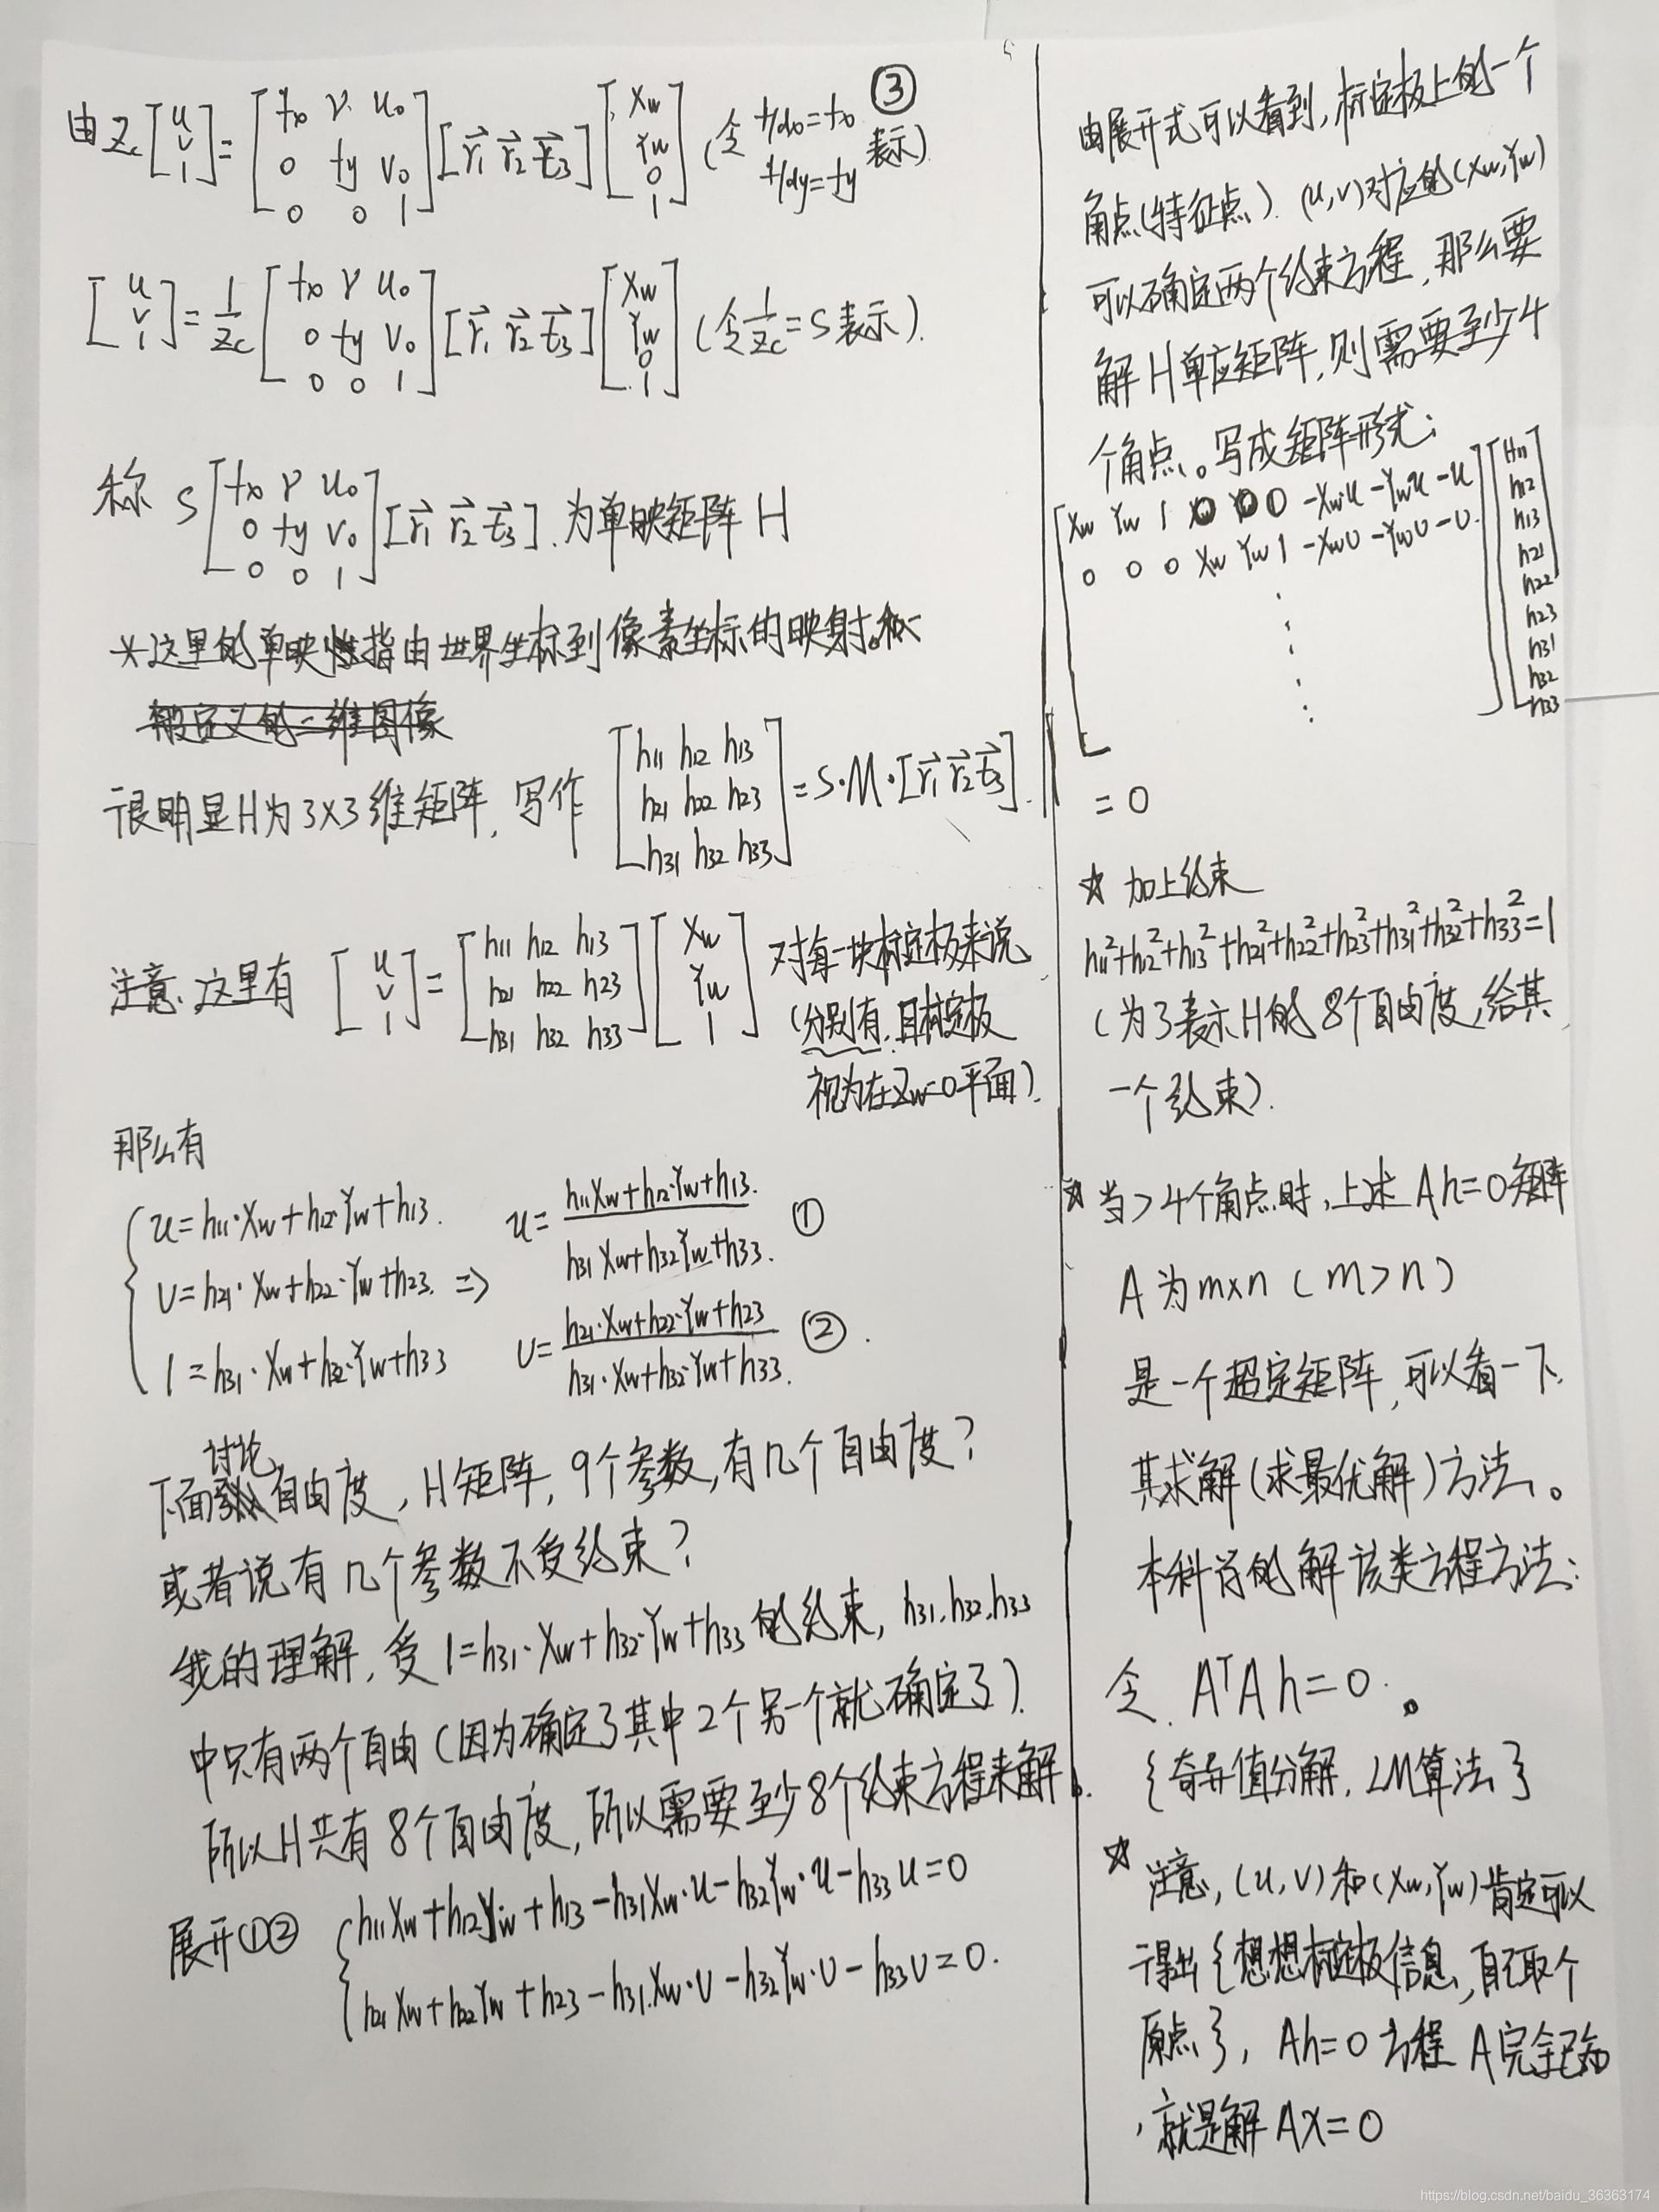 ③
由 Zc [u v 1] = [fx γ u0; 0 fy v0; 0 0 1] [r⃗1 r⃗2 t⃗3] [Xw Yw 0 1] (令 f/dx=fx f/dy=fy 表示)
[u v 1] = 1/Zc [fx γ u0; 0 fy v0; 0 0 1] [r⃗1 r⃗2 t⃗3] [Xw Yw 0 1] (令 1/Zc = S 表示).
称 S [fx γ u0; 0 fy v0; 0 0 1] [r⃗1 r⃗2 t⃗3]. 为单映矩阵 H
*这里的单映指由世界坐标到像素坐标的映射。
般定义的二维图像
很明显H为3×3维矩阵, 写作 [h11 h12 h13; h21 h22 h23; h31 h32 h33] = S·M·[r⃗1 r⃗2 t⃗3].
注意、这里有 [u v 1] = [h11 h12 h13; h21 h22 h23; h31 h32 h33] [Xw Yw 1] 对每一块标定板来说
(分别有, 且标定板
视为在Zw=0平面).
那么有
u=h11·Xw+h12·Yw+h13. u= (h11Xw+h12·Yw+h13.)/(h31Xw+h32Yw+h33.) ①
v=h21·Xw+h22·Yw+h23. =>
1=h31·Xw+h32·Yw+h33 v= (h21·Xw+h22·Yw+h23)/(h31·Xw+h32·Yw+h33.) ② .
下面讨论自由度, H矩阵, 9个参数, 有几个自由度?
或者说有几个参数不受约束?
我的理解, 受 1=h31·Xw+h32·Yw+h33 的约束, h31,h32,h33
中只有两个自由(因为确定了其中2个另一个就确定了).
所以H共有8个自由度, 所以需要至少8个约束方程来解.
展开①② { h11Xw+h12Yw+h13-h31Xw·u-h32Yw·u-h33u=0
h21Xw+h22Yw+h23-h31.Xw·v-h32Yw·v-h33v=0.
由展开式可以看到, 标定板上的一个
角点(特征点). (u,v)对应的(Xw,Yw)
可以确定两个约束方程, 那么要
解H单应矩阵, 则需要至少4
个角点。写成矩阵形式:
[Xw Yw 1 0 0 0 -Xwu -Ywu -u
0 0 0 Xw Yw 1 -Xwv -Ywv -v.
⋮ ] [H11 h12 h13 h21 h22 h23 h31 h32 h33]
= 0
☆ 加上约束
h11²+h12²+h13²+h21²+h22²+h23²+h31²+h32²+h33²=1
(为了表示H的8个自由度, 给其
一个约束).
☆当>4个角点时, 上述Ah=0矩阵
A为m×n (m>n)
是一个超定矩阵, 可以看一下.
其求解(求最优解)方法。
本科学的解该类方程方法:
令. AᵀAh=0.。
{奇异值分解. LM算法}
☆ 注意, (u,v)和(Xw,Yw)肯定可以
得出{想想标定板信息, 自己取个
原点}, Ah=0方程 A完全已知
, 就是解AX=0
https://blog.csdn.net/baidu_36363174